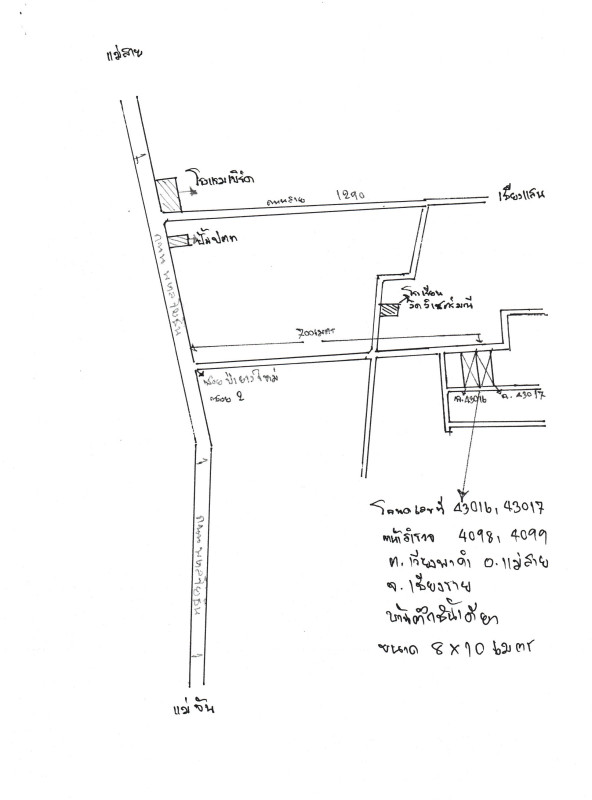 แม่สาย
โรงแรมเบิร์ด
ถนนสาย 1290
เชียงแสน
ปั๊มปตท
ถนน พหลโยธิน
โรงเรียน
700 เมตร
ซอย ป่ายางใหม่
ซอย 2
ฉ.43016
ฉ. 43017
โฉนดเลขที่ 43016, 43017
หน้าสำรวจ 4098, 4099
ต. เวียงพางคำ อ.แม่สาย
จ. เชียงราย
บ้านตึกชั้นเดียว
ขนาด 8 x 10 เมตร
ถนนพหลโยธิน
แม่จัน